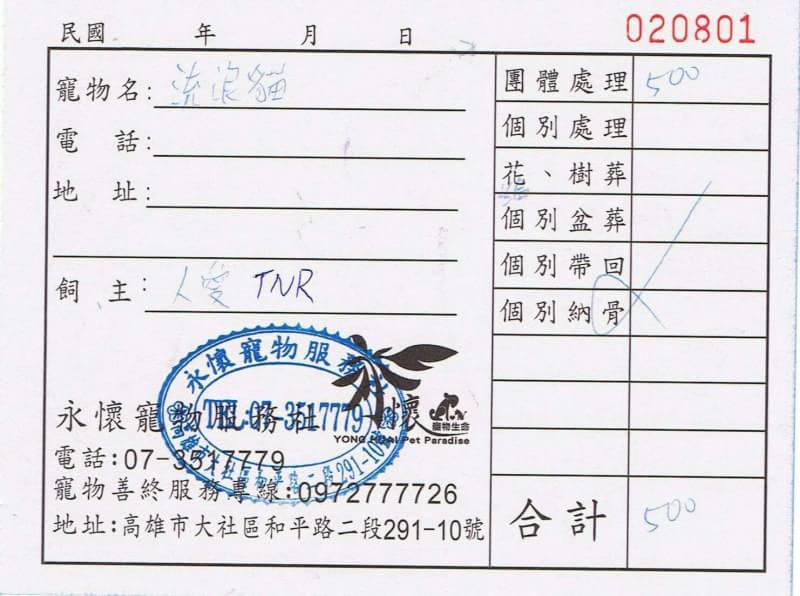 民國 年 月 日 020801
寵物名: 流浪貓
電 話:
地 址:
飼 主: 人愛 TNR
團體處理 500
個別處理
花、樹葬
個別盆葬
個別帶回
個別納骨
合計 500
永懷寵物服務社
TEL:07-3517779
永懷寵物服務社 永懷
寵物生命
YONG HUAI Pet Paradise
電話:07-3517779
寵物善終服務專線:0972777726
地址:高雄市大社區和平路二段291-10號
高雄市大社區和平路二段291-10號